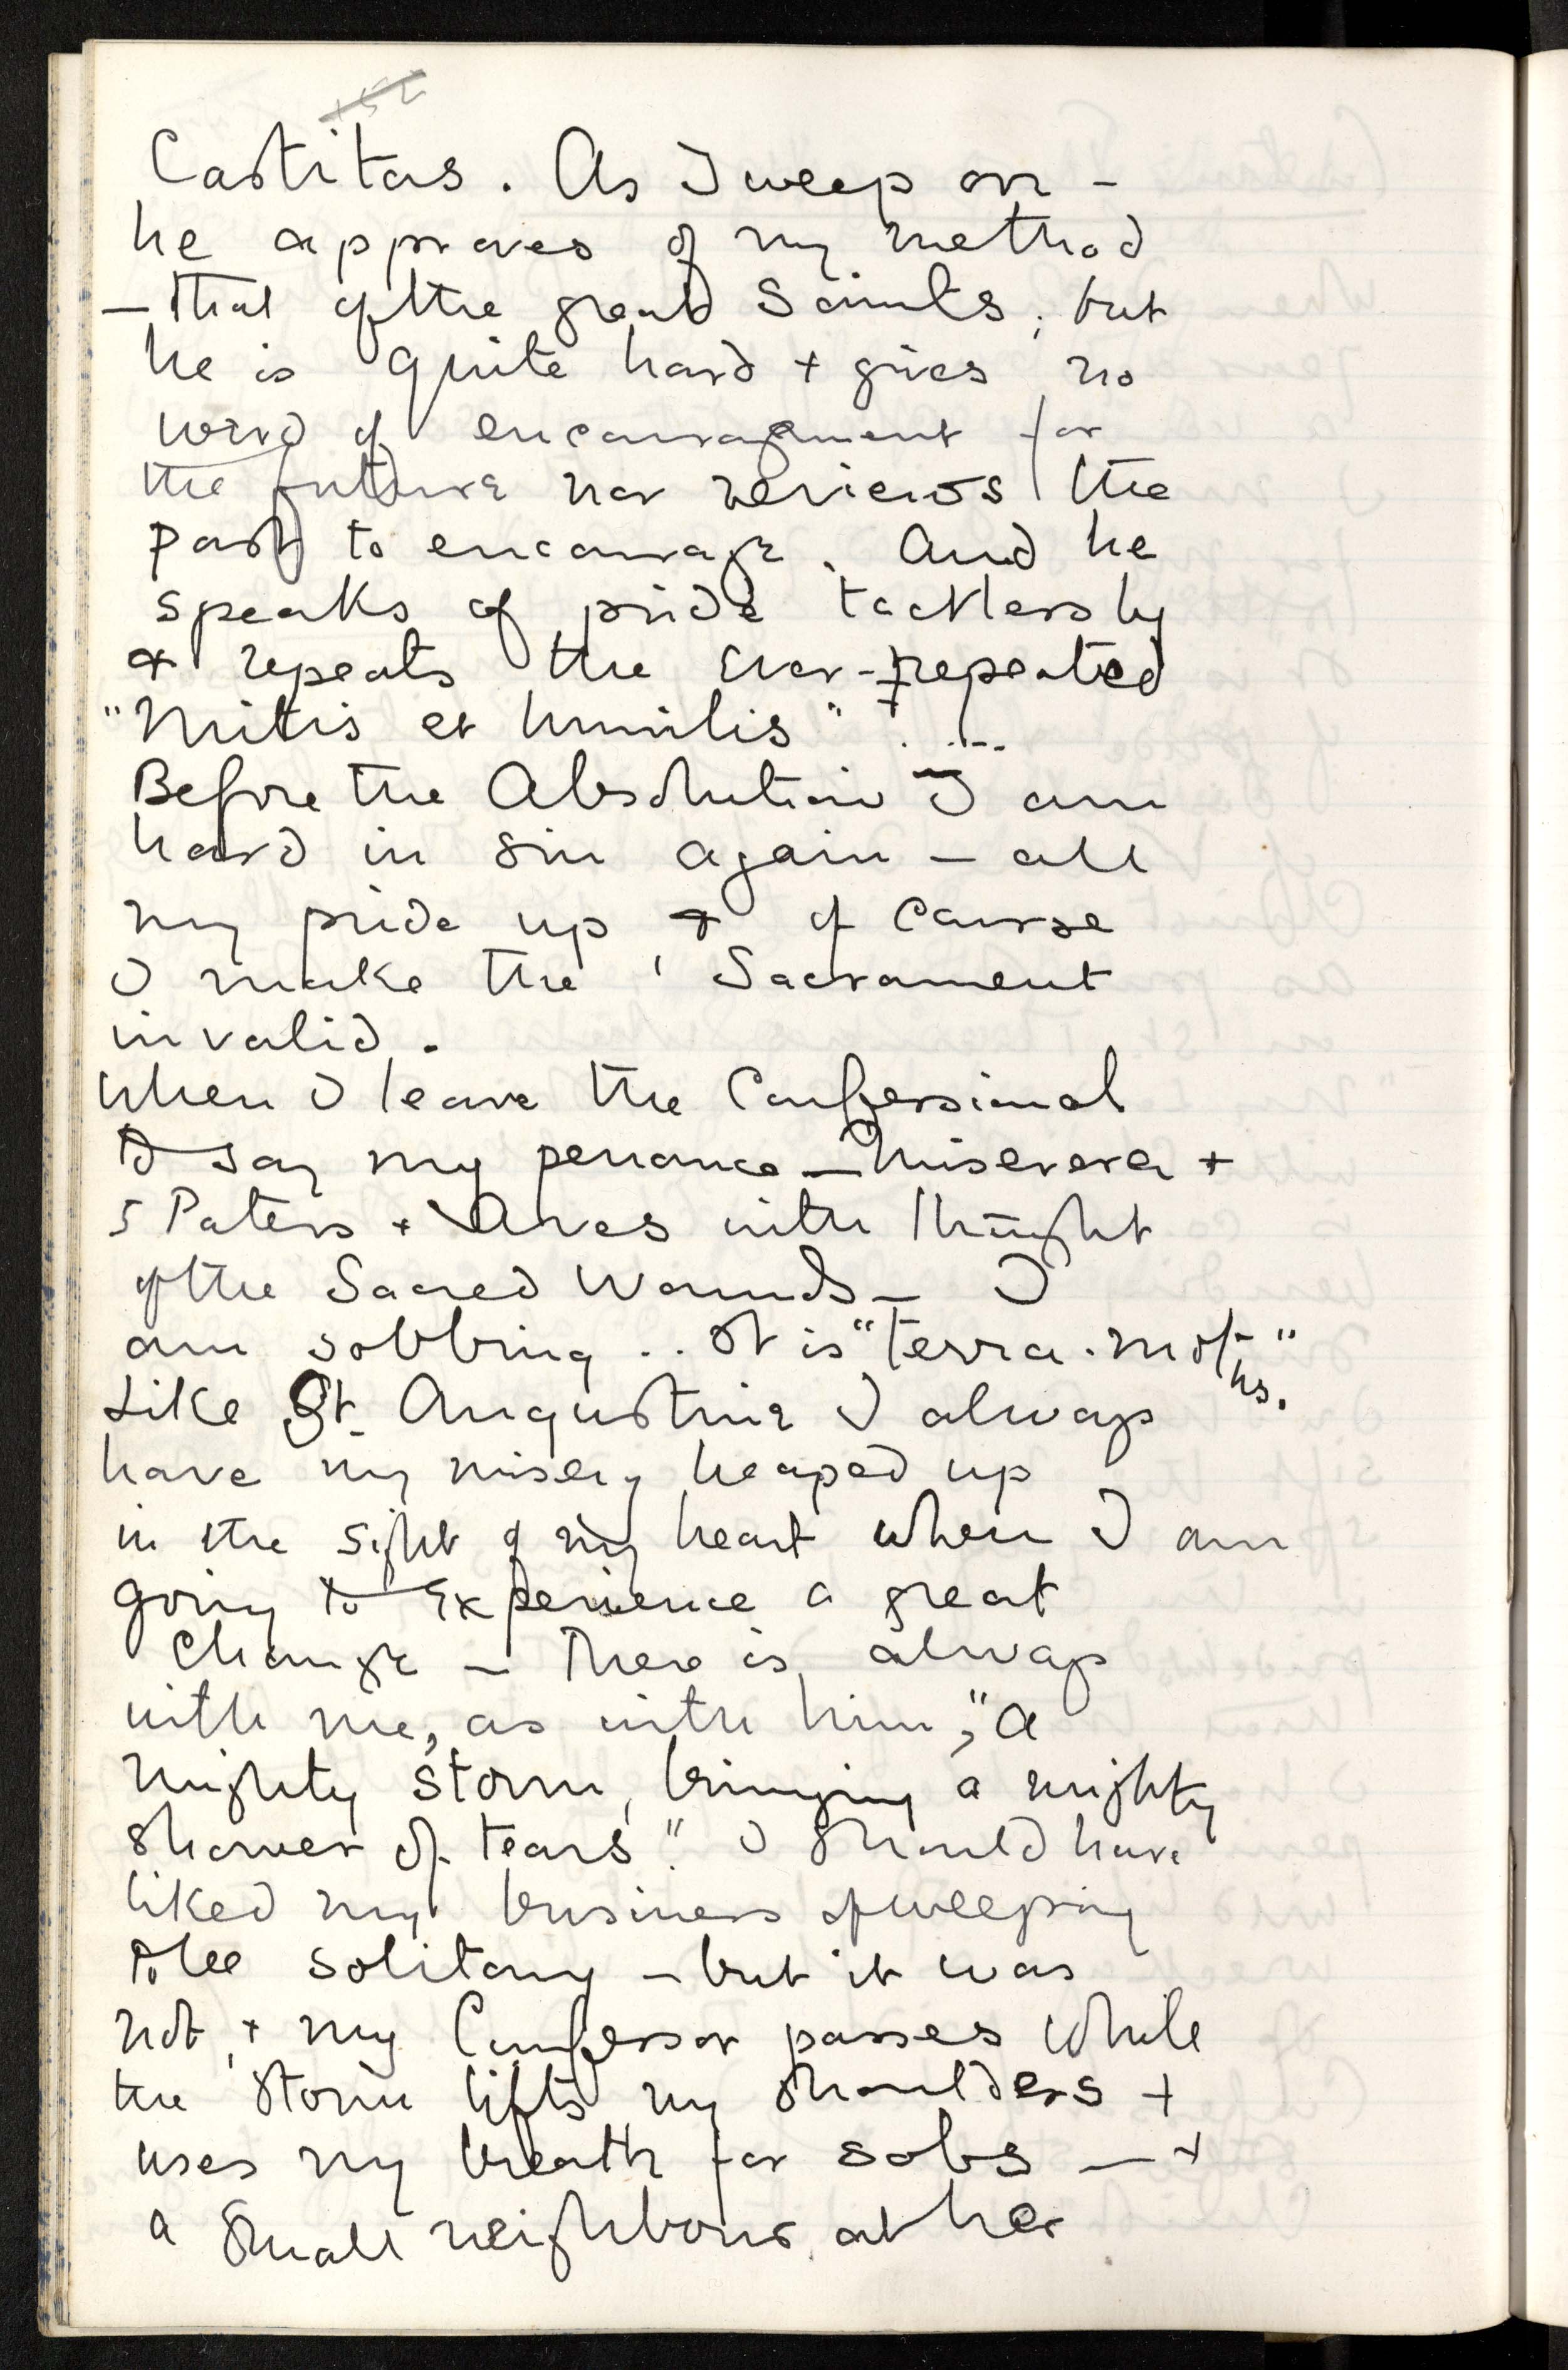 Castitas. As I weep on –
he approves of my method
– that of the great Saints; but
he is quite hard + gives no
word of encouragement for
the future nor reviews the
past to encourage. And he
speaks of pride tactlessly
+ repeats the ever-repeated
"Mitis et humilis" . ...
Before the Absolution I am
hard in sin again – all
my pride up + of course
I make the Sacrament
invalid.
When I leave the Confessional
to say my penance – Miserere +
5 Paters + Aves with thought
of the Sacred Wounds – I
am sobbing .. It is "terra-motus."
Like St Augustine I always
have my misery heaped up
in the sight of my heart when I am
going to experience a great
change – There is always
with me, as with him, "a
mighty storm, bringing a mighty
shower of tears". I should have
liked my business of weeping
to be solitary – but it was
not, + my Confessor passes while
the storm lifts my shoulders +
uses my breath for sobs – +
a small neighbour at her